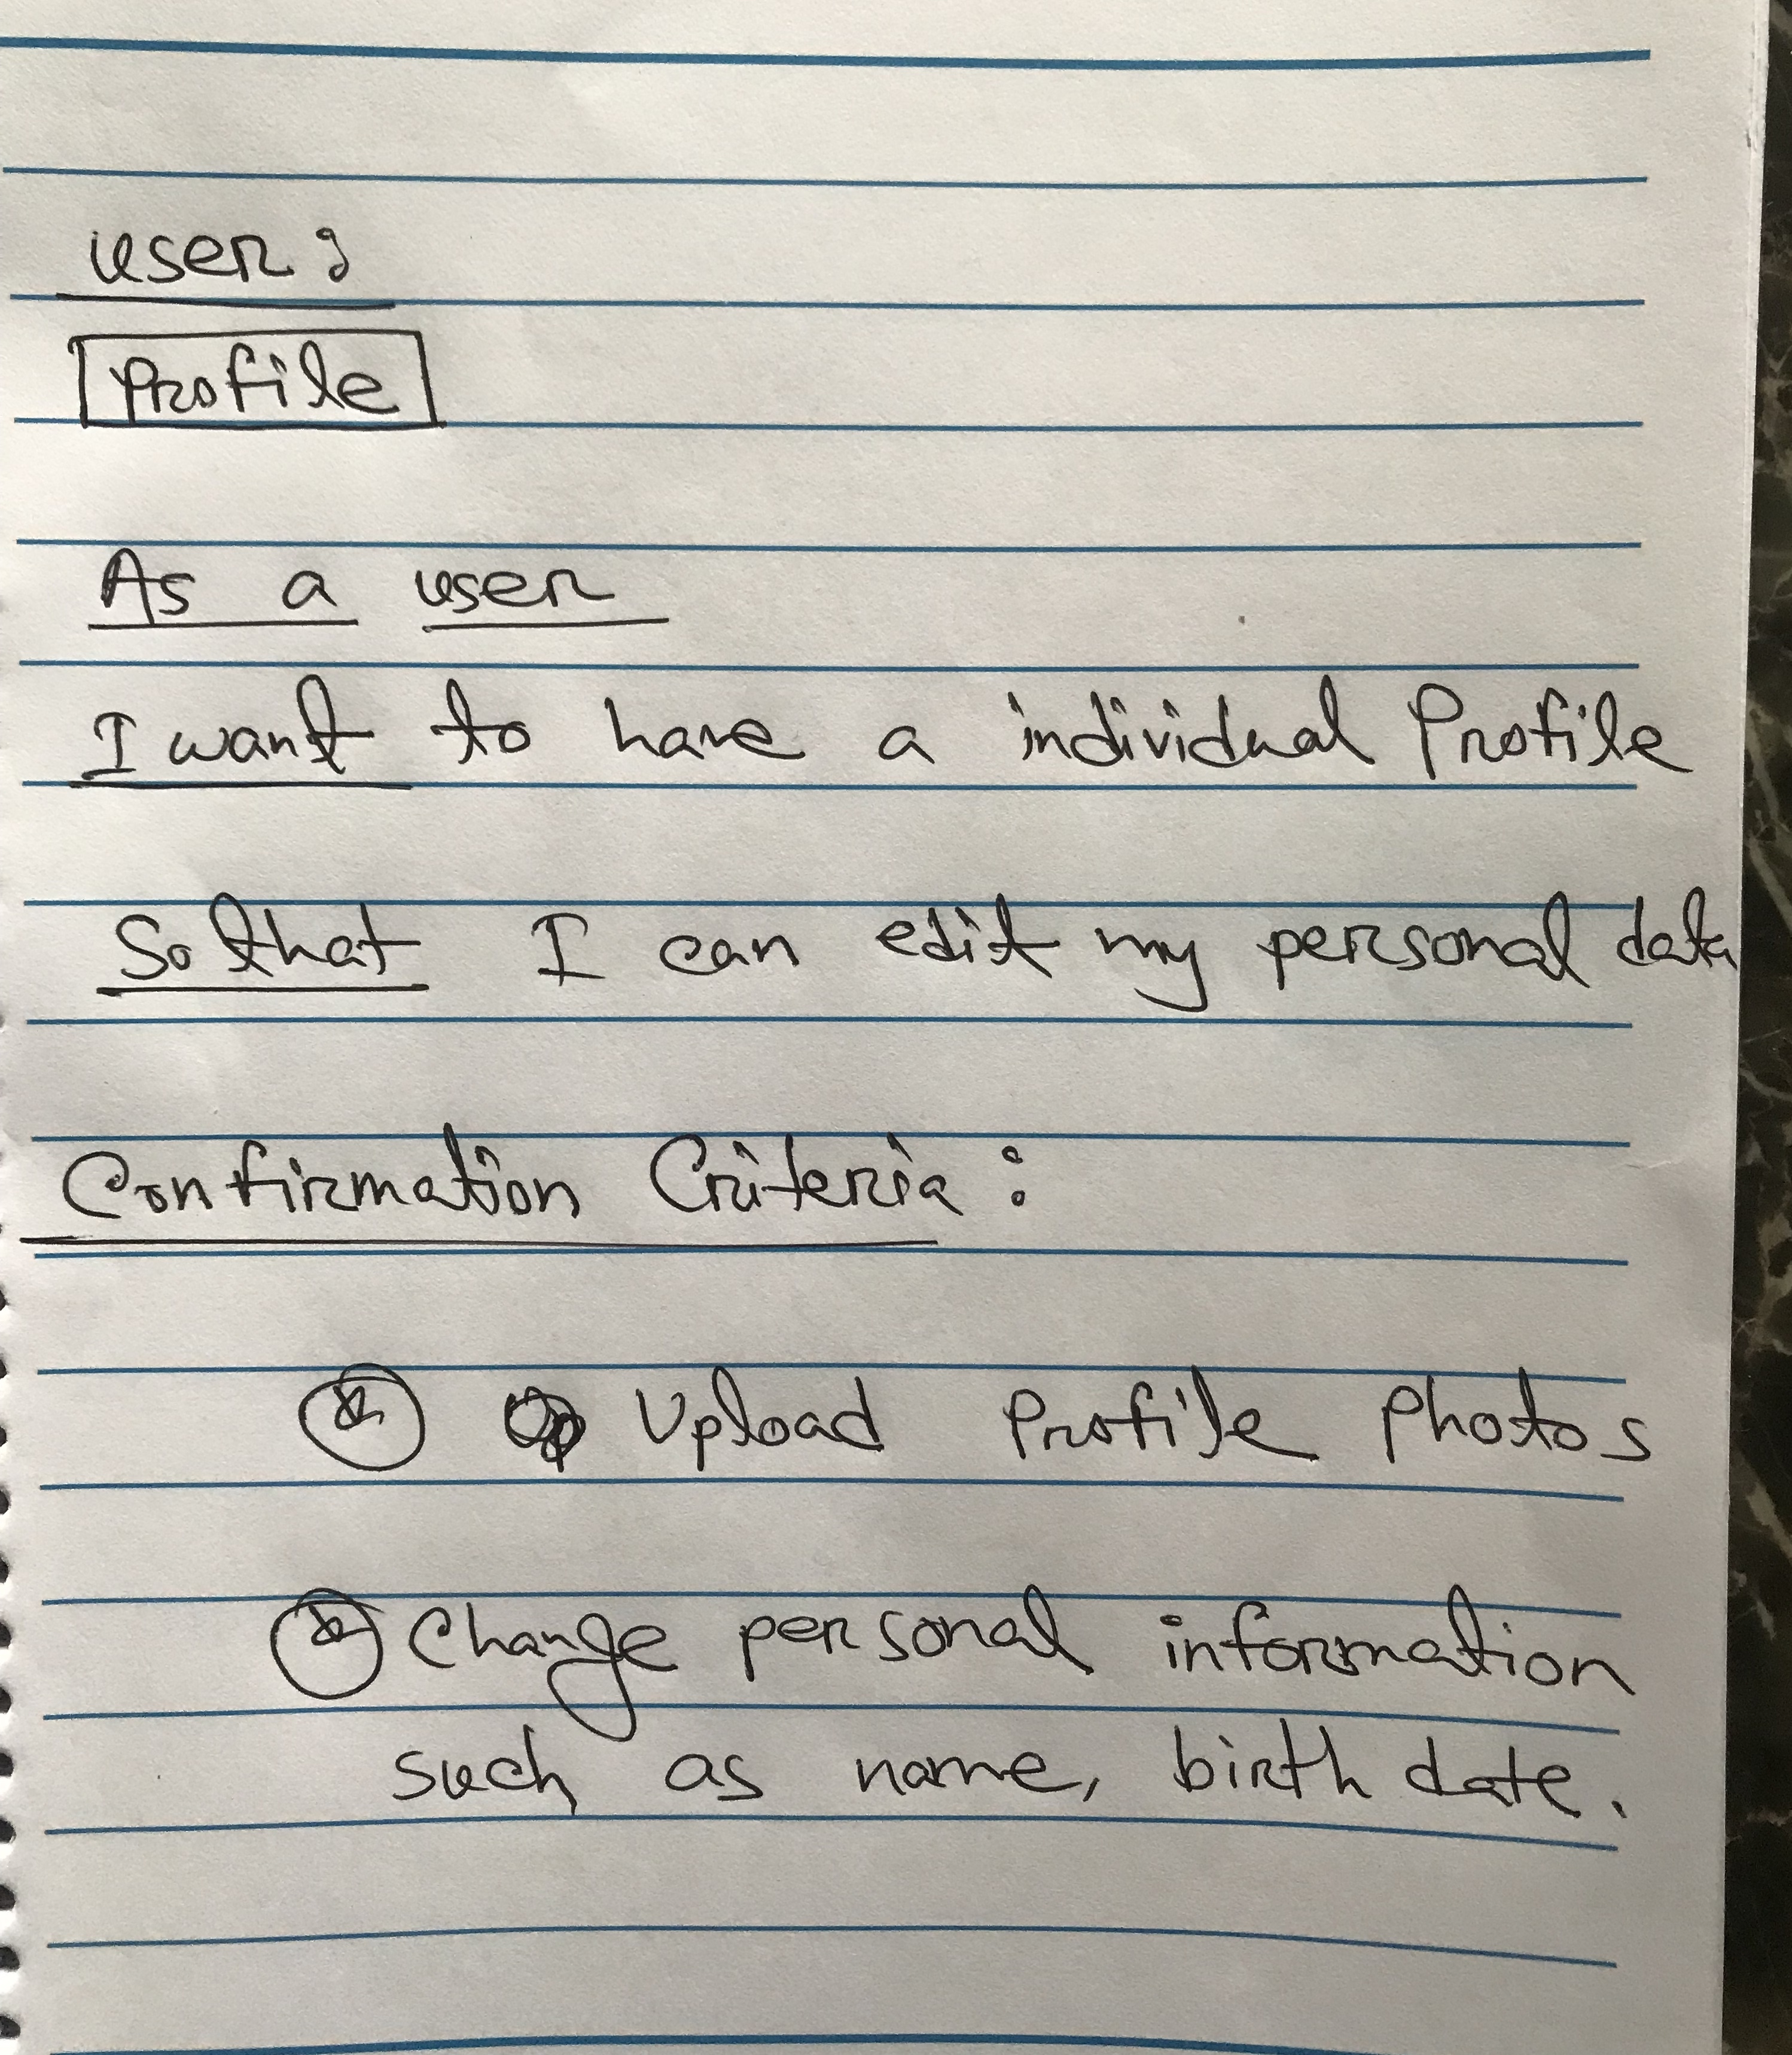 user:
Profile
As a user
I want to have a individual Profile
So that I can edit my personal data
Confirmation Criteria:
Upload Profile photos
Change personal information
such as name, birth date.